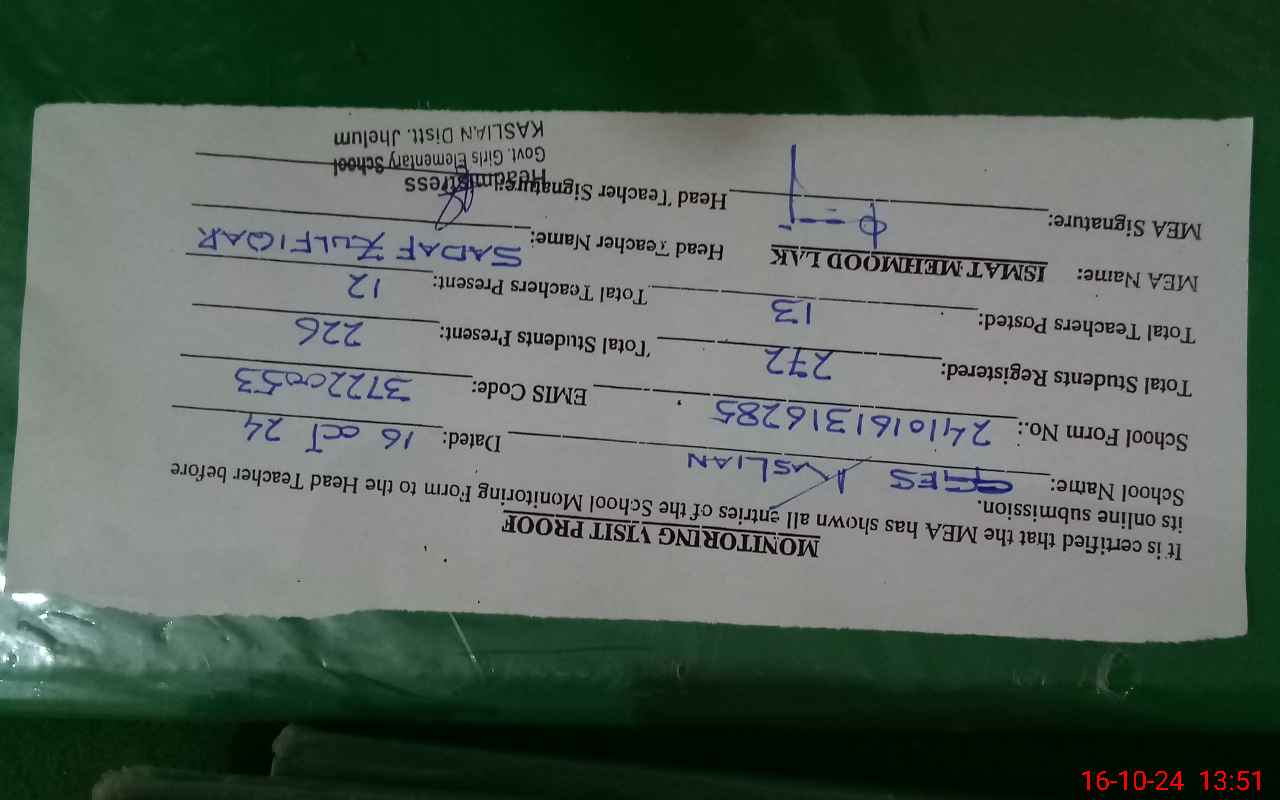 MONITORING VISIT PROOF
It is certified that the MEA has shown all entries of the School Monitoring Form to the Head Teacher before
its online submission.
School Name: GGES KASLIAN Dated: 16 OCT 24
School Form No.: 241016131316285 EMIS Code: 37220053
Total Students Registered: 272 Total Students Present: 226
Total Teachers Posted: 13 Total Teachers Present: 12
MEA Name: ISMAT MEHMOOD LAK Head Teacher Name: SADAF ZULFIQAR
MEA Signature: Head Teacher Signature:
Headmistress
Govt. Girls Elementary School
KASLIAN Distt. Jhelum
16-10-24 13:51